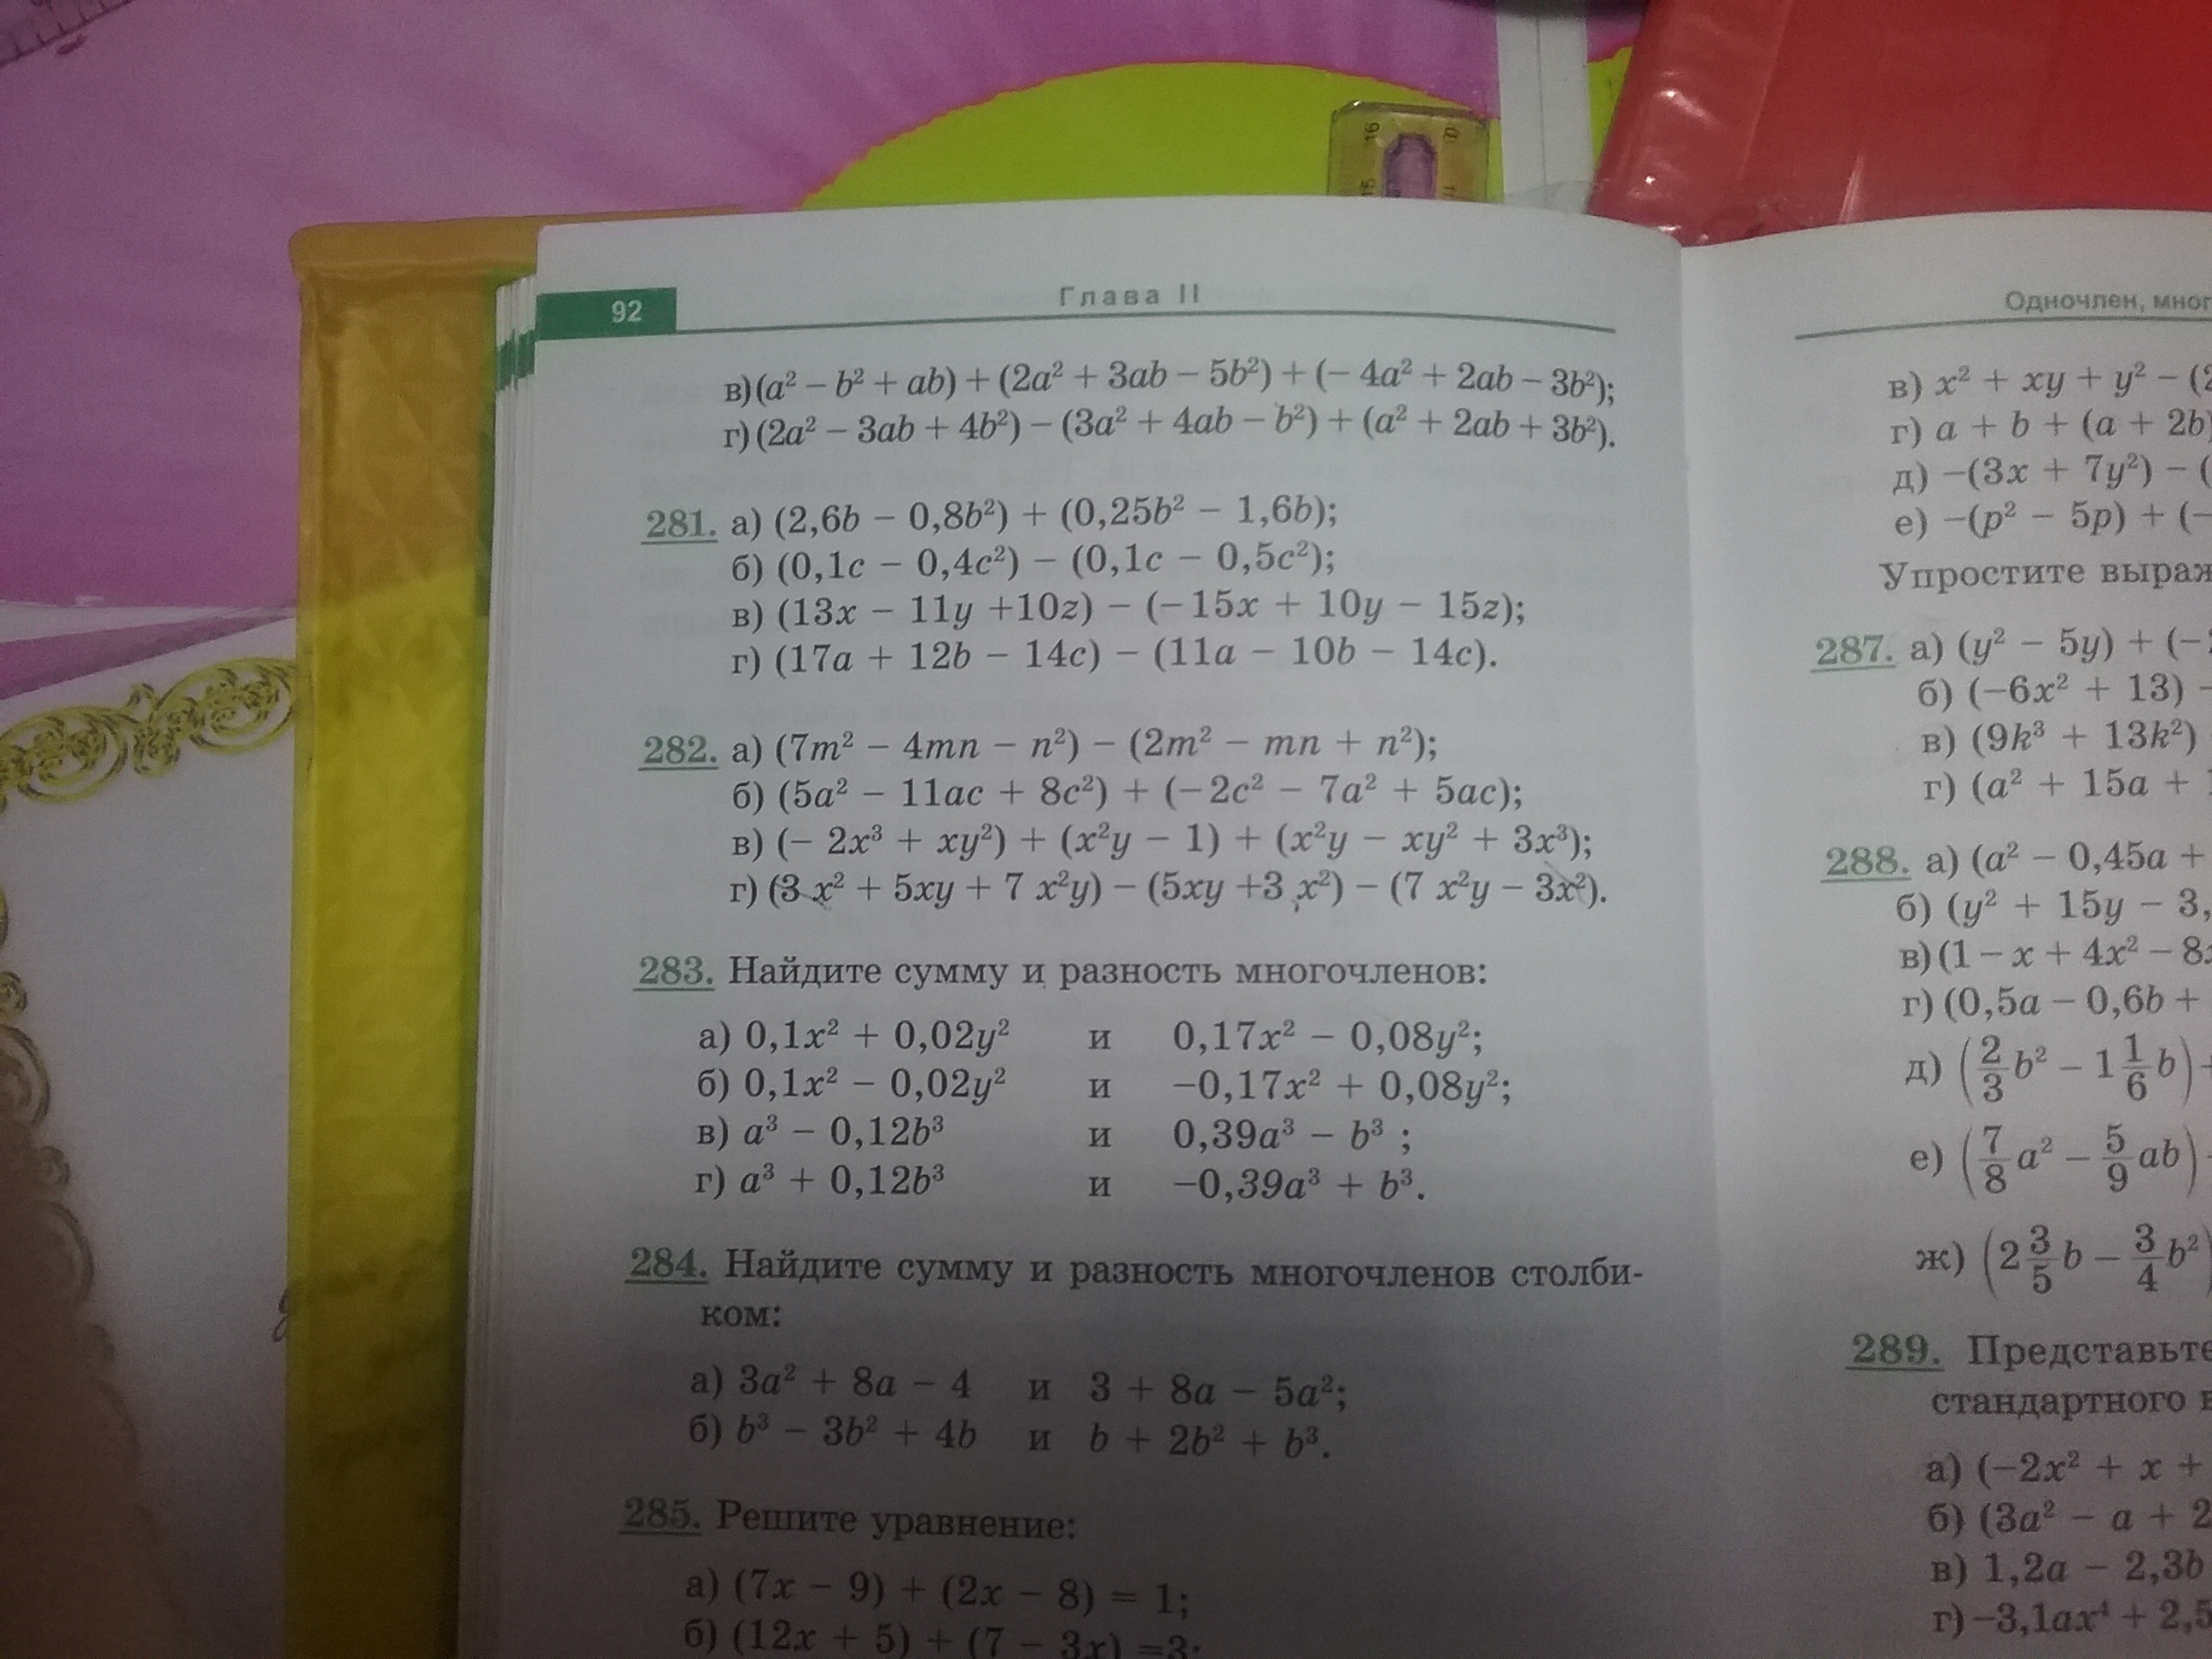 92
Глава II
в)(a² − b² + ab) + (2a² + 3ab − 5b²) + (− 4a² + 2ab − 3b²);
г)(2a² − 3ab + 4b²) − (3a² + 4ab − b²) + (a² + 2ab + 3b²).
281. а) (2,6b − 0,8b²) + (0,25b² − 1,6b);
б) (0,1c − 0,4c²) − (0,1c − 0,5c²);
в) (13x − 11y +10z) − (−15x + 10y − 15z);
г) (17a + 12b − 14c) − (11a − 10b − 14c).
282. а) (7m² − 4mn − n²) − (2m² − mn + n²);
б) (5a² − 11ac + 8c²) + (−2c² − 7a² + 5ac);
в) (− 2x³ + xy²) + (x²y − 1) + (x²y − xy² + 3x³);
г) (3 x² + 5xy + 7 x²y) − (5xy +3 x²) − (7 x²y − 3x²).
283. Найдите сумму и разность многочленов:
а) 0,1x² + 0,02y² и 0,17x² − 0,08y²;
б) 0,1x² − 0,02y² и −0,17x² + 0,08y²;
в) a³ − 0,12b³ и 0,39a³ − b³ ;
г) a³ + 0,12b³ и −0,39a³ + b³.
284. Найдите сумму и разность многочленов столби-
ком:
а) 3a² + 8a − 4 и 3 + 8a − 5a²;
б) b³ − 3b² + 4b и b + 2b² + b³.
285. Решите уравнение:
а) (7x − 9) + (2x − 8) = 1;
б) (12x + 5) + (7 − 3x) =3;
Одночлен, мног
в) x² + xy + y² − (2
г) a + b + (a + 2b)
д) −(3x + 7y²) − (
е) −(p² − 5p) + (−
Упростите выраж
287. а) (y² − 5y) + (−
б) (−6x² + 13) −
в) (9k³ + 13k²)
г) (a² + 15a + 1
288. а) (a² − 0,45a +
б) (y² + 15y − 3,
в)(1 − x + 4x² − 8x
г) (0,5a − 0,6b +
д) (2/3 b² − 1 1/6 b) +
е) (7/8 a² − 5/9 ab) -
ж) (2 3/5 b − 3/4 b²)
289. Представьте
стандартного в
а) (−2x² + x +
б) (3a² − a + 2
в) 1,2a − 2,3b
г) −3,1ax⁴ + 2,5
16
15
0